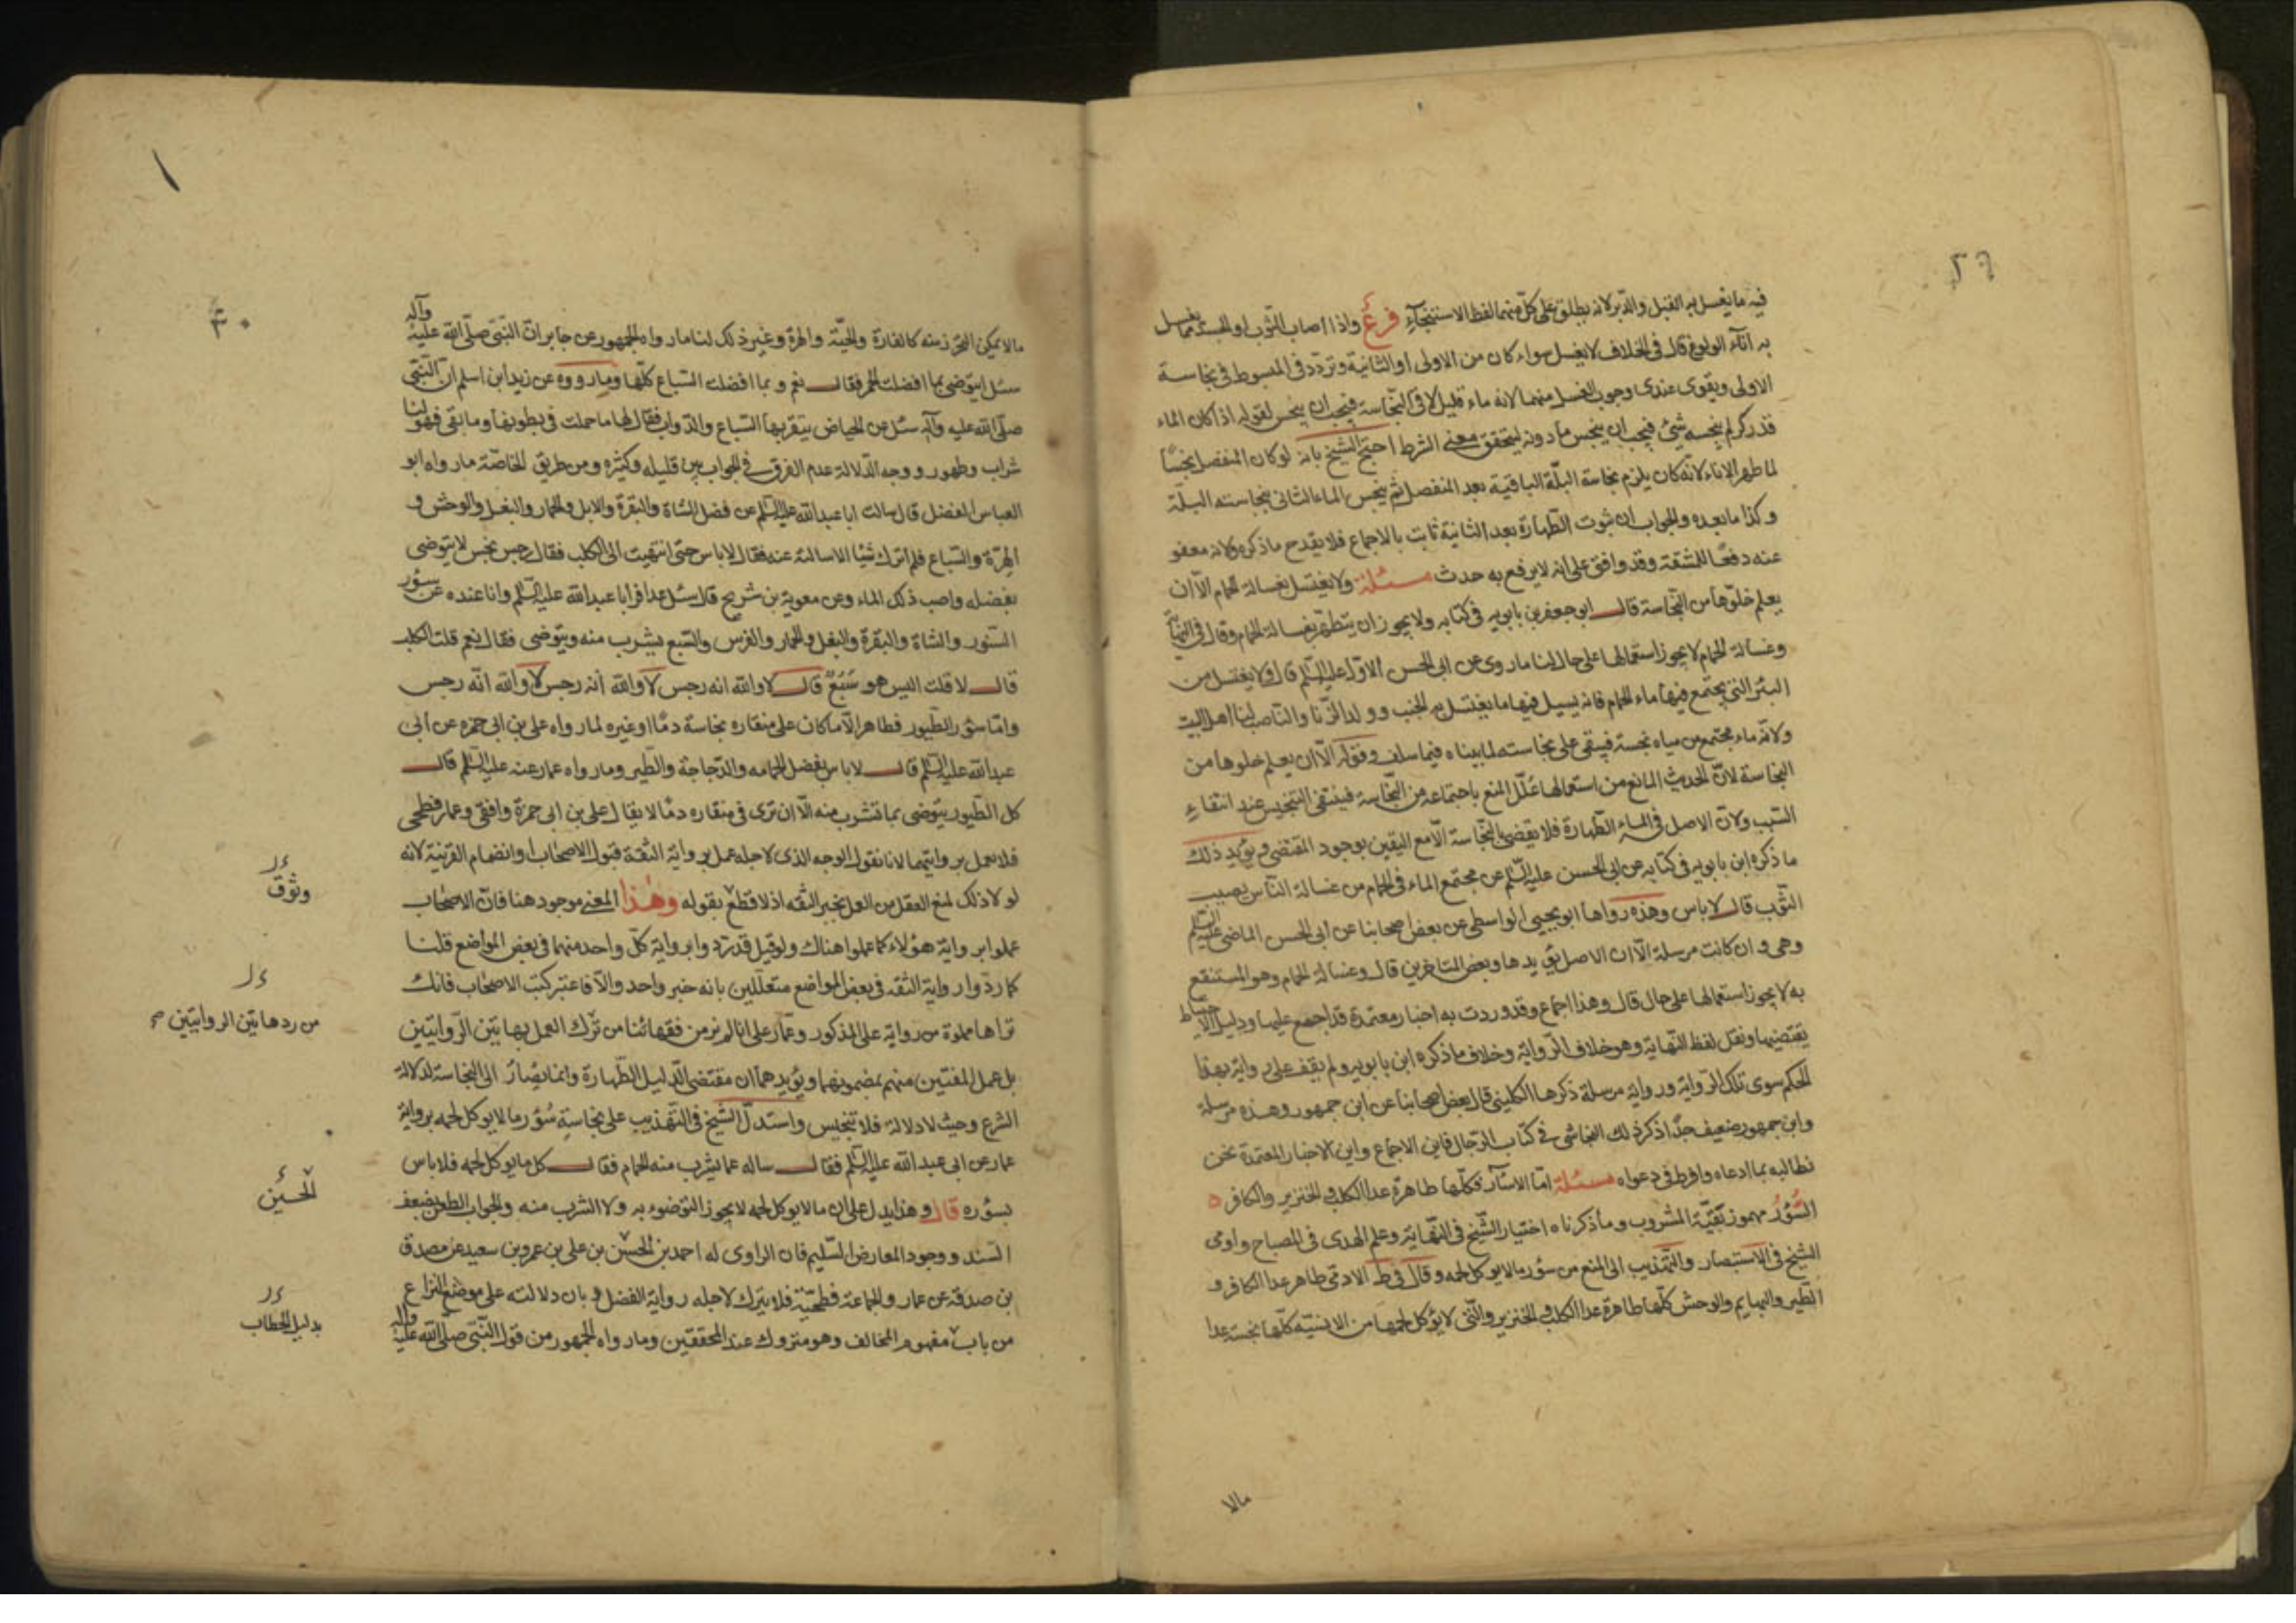 فيه ما يغسل به القبل والدبر لانه يطلق على كل منهما لفظ الاستنجآء فرع واذا اصاب الثوب او الجسد مما يغسل
به انآء الولوغ قال فى الخلاف لا يغسل سواء كان من الاولى او الثانية وتردد فى المبسوط فى نجاسة
الاولى ويقوى عندى وجوب الغسل منهما لانه ماء قليل لاقى النجاسة فيجب ان ينجس لقوله اذا كان الماء
قدر كر لم ينجسه شئ فيجب ان ينجس ما دونه ليتحقق معنى الشرط احتج الشيخ بانه لو كان المنفصل نجسًا
لما طهر الاناء لانه كان يلزم نجاسة البلة الباقية بعد المنفصل ثم ينجس الماء الثانى بنجاسته البلة
وكذا ما بعده والجواب ان ثبوت الطهارة بعد الثانية ثابت بالاجماع فلا يقدح ما ذكره ولانه معفو
عنه دفعًا للمشقة وقد وافق على انه لا يرفع به حدث مسئلة ولا يغتسل بغسالة الحمام الا ان
يعلم خلوها من النجاسة قال ابو جعفر بن بابويه فى كتابه ولا يجوز ان يتطهر بغسالة الحمام وقال فى النهاية
وغسالة الحمام لا يجوز استعمالها على حال لنا ما روى عن ابى الحسن الاول عليه السلم قال ولا يغتسل من
البئر التى يجتمع فيها ماء الحمام فانه يسيل فيها ما يغتسل به الجنب وولد الزنا والناصب لنا اهل البيت
ولانه ماء مجتمع من مياه نجسة فيبقى على نجاسته لما بيناه فيما سلف وقوله الا ان يعلم خلوها من
النجاسة لان الحديث المانع من استعمالها علل المنع باجتماعه من النجاسة فينتفى التنجيس عند انتفاء
السبب ولان الاصل فى الماء الطهارة فلا يقضى بالنجاسة الا مع اليقين بوجود المقتضى ويؤيد ذلك
ما ذكره ابن بابويه فى كتابه عن ابى الحسن عليه السلم عن مجتمع الماء فى الحمام من غسالة الناس يصيب
الثوب قال لا باس وهذه رواها ابو يحيى الواسطى عن بعض اصحابنا عن ابى الحسن الماضى عليه السلم
وهى وان كانت مرسلة الا ان الاصل يؤيدها وبعض المتاخرين قال وغسالة الحمام وهو المستنقع
به لا يجوز استعمالها على حال قال وهذا اجماع وقد وردت به اخبار معتمدة قد اجمع عليها ودليل الاحتياط
يقتضيها ونقل لفظ النهاية وهو خلاف الرواية وخلاف ما ذكره ابن بابويه ولم يقف على رواية بهذا
الحكم سوى تلك الرواية ورواية مرسلة ذكرها الكلينى قال بعض اصحابنا عن ابن جمهور وهذه مرسلة
وابن جمهور ضعيف جدًا ذكر ذلك النجاشى فى كتاب الرجال فاين الاجماع واين الاخبار المعتمدة نحن
نطالبه بما ادعاه وافرط فى دعواه مسئلة اما الاسآر فكلها طاهرة عدا الكلب والخنزير والكافر
السؤر مهموز بقية المشروب وما ذكرناه اختيار الشيخ فى النهاية وعلم الهدى فى المصباح واومى
الشيخ فى الاستبصار والتهذيب الى المنع من سؤر ما لا يؤكل لحمه وقال فى ط الادمى طاهر عدا الكافر و
الطير والبهايم والوحش كلها طاهرة عدا الكلب والخنزير والتى لا يؤكل لحمها من الانسية كلها نجسة عدا
مالا
٣٠
ما لا يمكن التحرز منه كالفارة والحية والهرة وغير ذلك لنا ما رواه الجمهور عن جابر ان النبى صلى الله عليه وآله
سئل ايتوضى بما افضلت الحمر فقال نعم وبما افضلت السباع كلها وما رووه عن زيد ابن اسلم ان النبى
صلى الله عليه وآله سئل عن الحياض ينقر بها السباع والدواب فقال لها ما حملت فى بطونها وما بقى فهو لنا
شراب وطهور ووجه الدلالة عدم الفرق فى الجواب بين قليله وكثيره ومن طريق الخاصة ما رواه ابو
العباس الفضل قال سالت ابا عبد الله عليه السلم عن فضل الشاة والبقرة والابل والحمار والبغل والوحش و
الهرة والسباع فلم اترك شيئا الا سالته عنه فقال لا باس حتى انتهيت الى الكلب فقال رجس نجس لا يتوضى
بفضله واصب ذلك الماء وعن معوية بن شريح قال سئل عذافر ابا عبد الله عليه السلم وانا عنده عن سؤر
السنور والشاة والبقرة والبغل والحمار والفرس والسبع يشرب منه ويتوضى فقال نعم قلت الكلب
قال لا قلت اليس هو سبع قال لا والله انه رجس لا والله انه رجس لا والله انه رجس
واما سؤر الطيور فطاهر الا ما كان على منقاره نجاسة دمًا او غيره لما رواه على بن ابى حمزه عن ابى
عبد الله عليه السلم قال لا باس بفضل الحمامه والدجاجة والطير وما رواه عمار عنه عليه السلم قال
كل الطيور يتوضى بما تشرب منه الا ان ترى فى منقاره دمًا لا يقال على بن ابى حمزة واقفى وعمار فطحى
فلا يعمل بروايتهما لانا نقول الوجه الذى لاجله عمل برواية الثقة قبول الاصحاب او انضمام القرينة لانه
لو لا ذلك لمنع العقل من العمل بخبر الثقه اذ لا قطع بقوله وهذا المعنى موجود هنا فان الاصحاب
عملوا برواية هؤلاء كما عملوا هناك ولو قيل قد ردوا رواية كل واحد منهما فى بعض المواضع قلنا
كما ردوا رواية الثقه فى بعض المواضع متعللين بانه خبر واحد والا فاعتبر كتب الاصحاب فانك
تراها مملوة من رواية على المذكور وعمار على انا لم نر من فقهائنا من ترك العمل بهاتين الروايتين
بل عمل المفتين منهم بمضمونهما ويؤيدهما ان مقتضى الدليل الطهارة وانما يصار الى النجاسة لدلالة
الشرع وحيث لا دلالة فلا تنجيس واستدل الشيخ فى التهذيب على نجاسة سؤر ما لا يوكل لحمه برواية
عمار عن ابى عبد الله عليه السلم فقال ساله عما يشرب منه الحمام فقال كل ما يوكل لحمه فلا باس
بسؤره قال وهذا يدل على ان ما لا يوكل لحمه لا يجوز التوضوء به ولا الشرب منه والجواب الطعن بضعف
السند ووجود المعارض السليم فان الراوى له احمد بن الحسن بن على بن عمرو بن سعيد عن مصدق
بن صدقة عن عمار والجماعة فطحية فلا يترك لاجله رواية الفضل وبان دلالته على موضع النزاع
من باب مفهوم المخالف وهو متروك عند المحققين وما رواه الجمهور من قول النبى صلى الله عليه وآله
وثوق
من رد هاتين الروايتين
الحسين
بدليل الخطاب